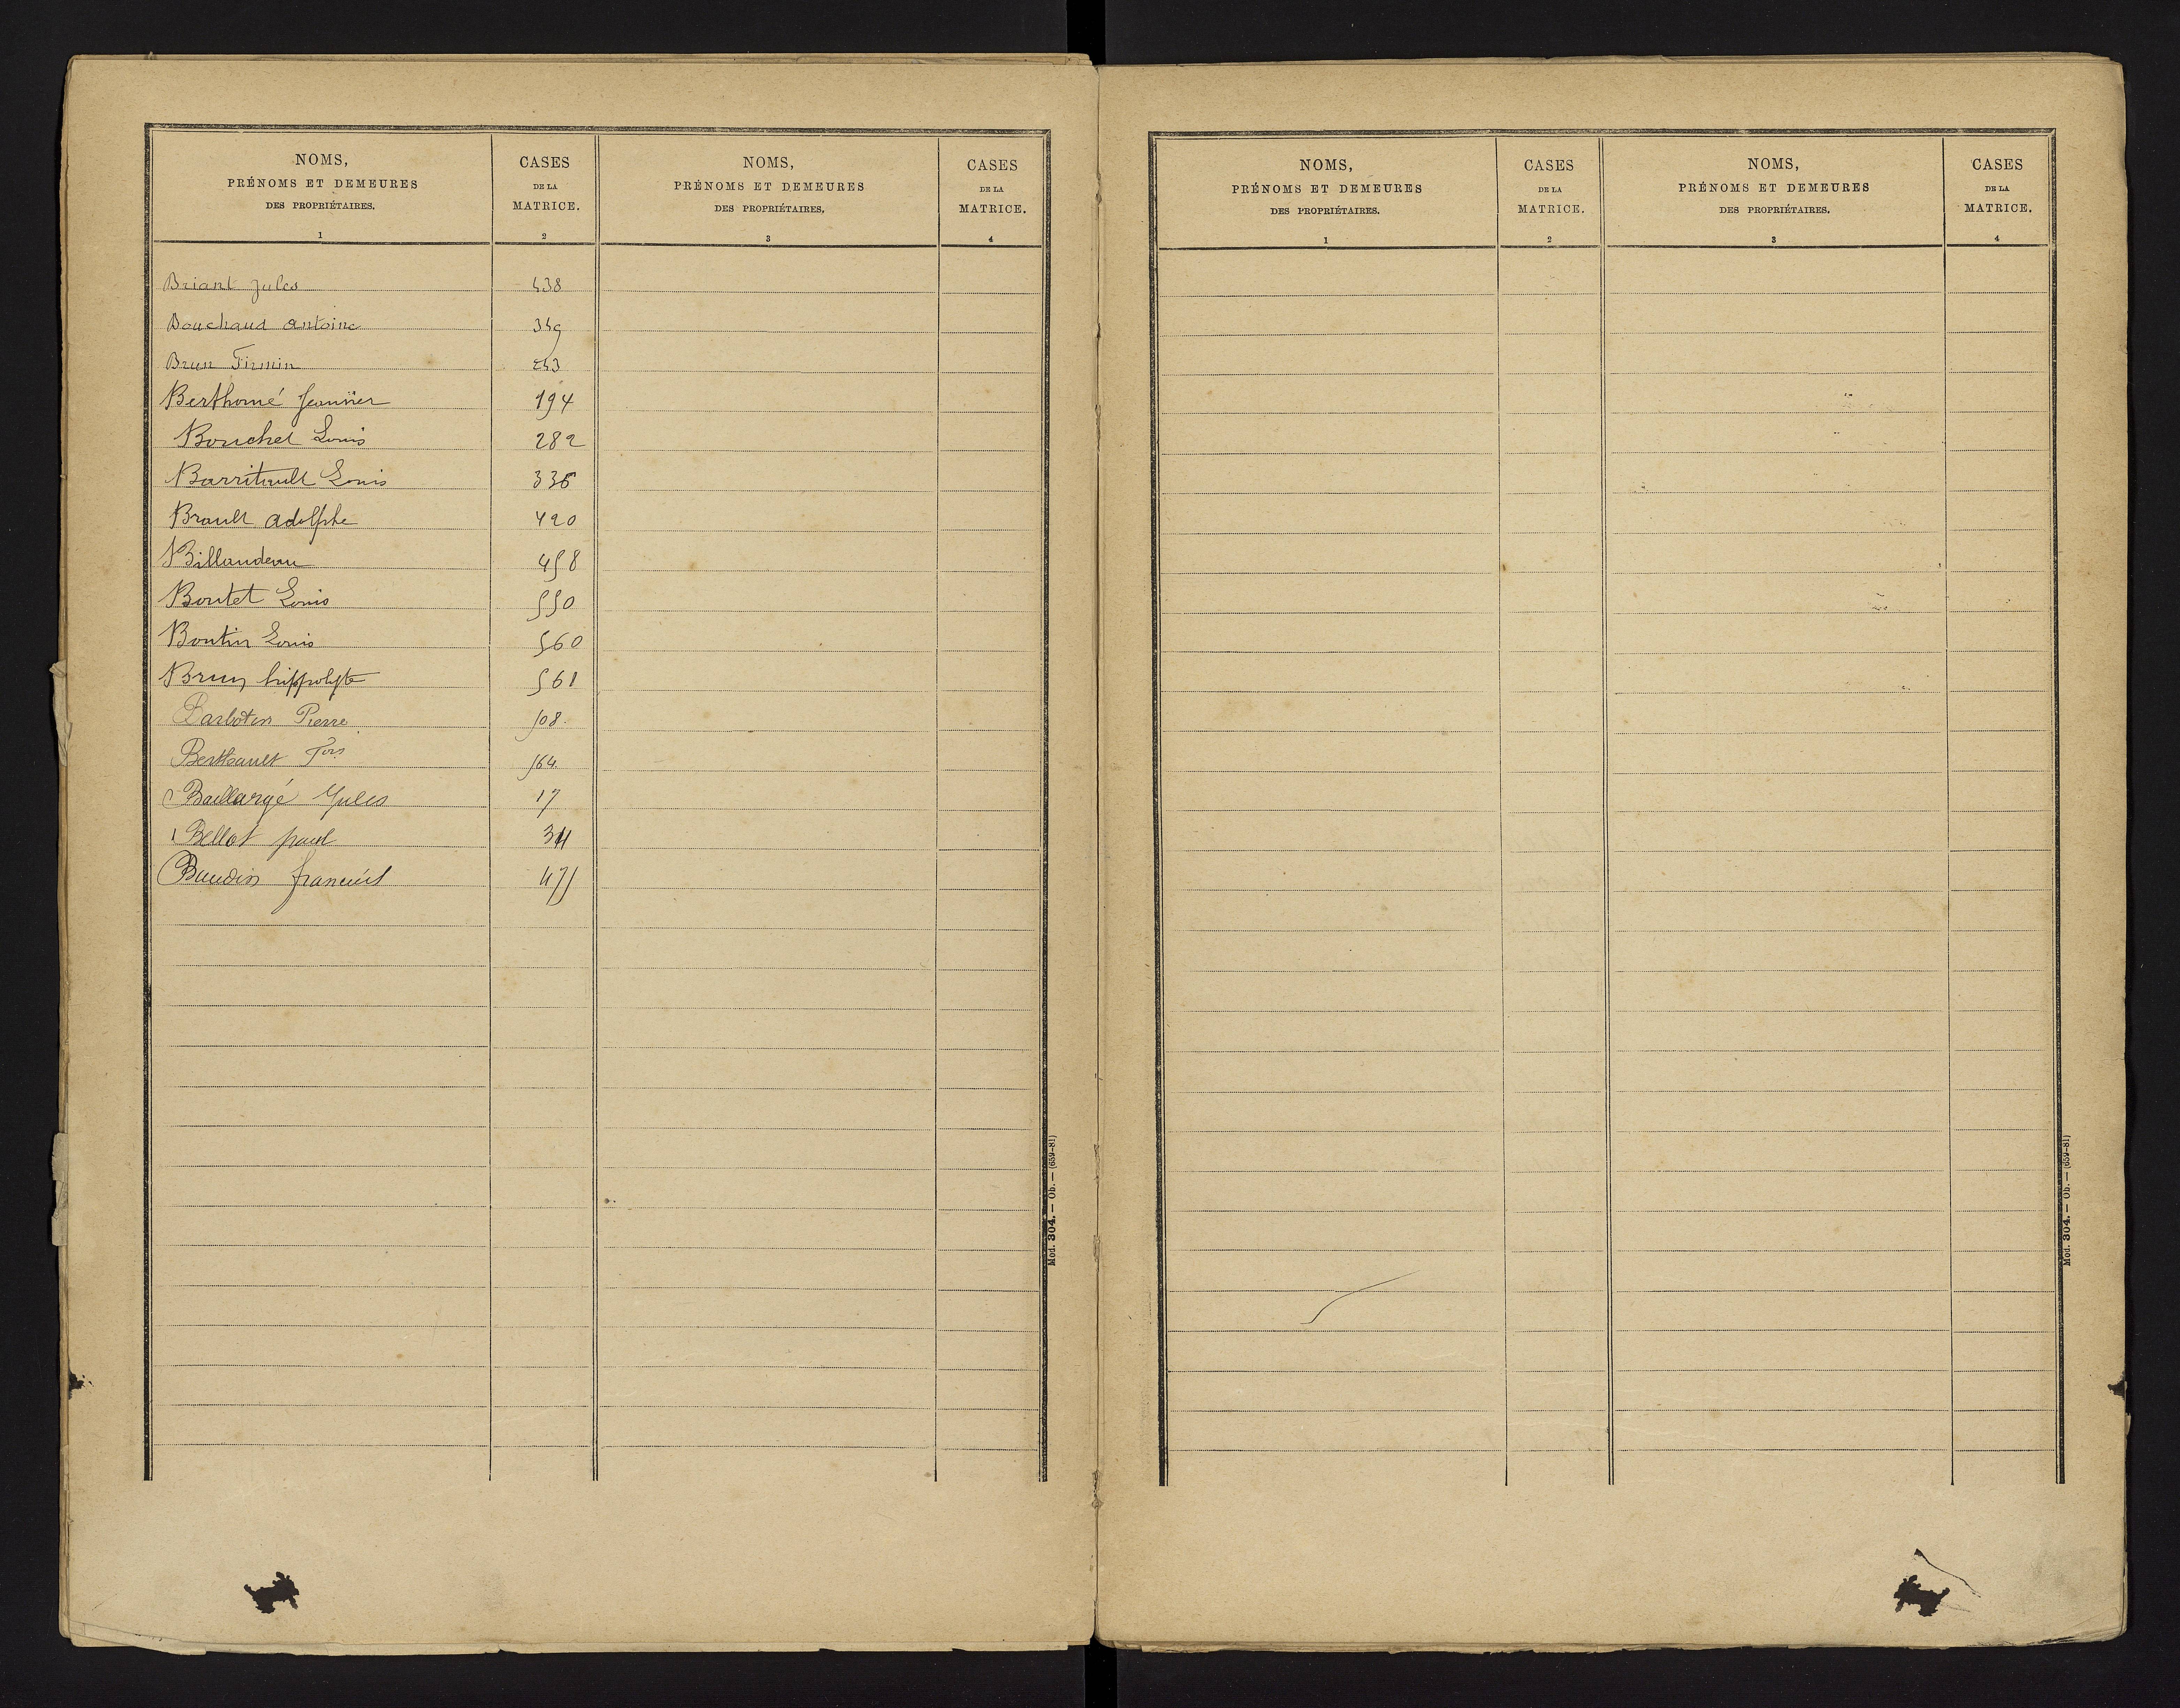 NOMS,
PRÉNOMS ET DEMEURES
DES PROPRIÉTAIRES.
1
CASES
DE LA
MATRICE.
2
NOMS,
PRÉNOMS ET DEMEURES
DES PROPRIÉTAIRES.
3
CASES
DE LA
MATRICE.
4
Briant Jules 438
Bouchaud antoine 349
Brun Firmin 243
Berthomé 194
Bouchet Louis 282
Barritault Louis 336
Brault adolphe 420
Billaudeau 458
Boutet Louis 550
Boutin Louis 560
Brun hippolyte 561
Barbotin Pierre 508
Berthault Fois 564
Baillargé Jules 17
Bellot paul
Baudin 475
Mod. 304. — Ob. — (659-81)
NOMS,
PRÉNOMS ET DEMEURES
DES PROPRIÉTAIRES.
1
CASES
DE LA
MATRICE.
2
NOMS,
PRÉNOMS ET DEMEURES
DES PROPRIÉTAIRES.
3
CASES
DE LA
MATRICE.
4
Mod. 304. — Ob. — (659-81)